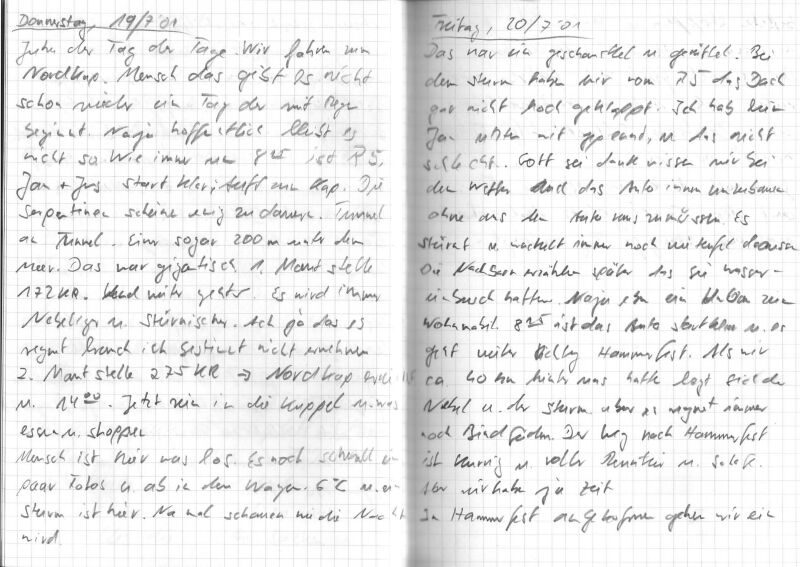 Donnerstag, 19/7'01
der Tag der Tage. Wir fahren zum
Nordkap. Mensch das gibt es nicht
schon wieder ein Tag der mit Regen
beginnt. Naja hoffentlich bleibt es
nicht so. Wie immer um 8 25 ist R5,
Jan + start klar auf zum Kap. Die
Serpentinen scheine ewig zu dauern. Tunnel
an Tunnel. Einer sogar 200 m unter dem
Meer. Das war gigantisch 1. Mautstelle
172 KR. weiter gehts. Es wird immer
Nebeliger u. Stürmischer. Ach ja das es
regnet brauch ich bestimmt nicht erwehnen
2. Mautstelle 275 KR → Nordkap
u. 14 00. Jetzt rein in die Kuppel u. was
essen u. shoppen
Mensch ist hier was los. Es noch schnell ein
paar Fotos u. ab in den Wagen. 6°C u. ein
Sturm ist hier. Na mal schauen wie die Nacht
wird.
Freitag, 20/7'01
Das war ein geschaukel u. gerüttel. Bei
dem Sturm haben wir vom R5 das Dach
gar nicht hoch geklappt. Ich hab bein
Jan mit gepennt, u. das nicht
schlecht. Gott sei dank wissen wir bei
den Wetter das Auto innen umzubauen
ohne aus dem Auto raus zu müssen. Es
stürmt u. wackelt immer noch wie teufel draussen
Die Nachbarn erzählen später das sie wasser-
einbruch hatten. Naja eben ein zum
Wohnmobil. 8 25 ist das Auto startklar u. es
geht weiter Hammerfest. Als wir
ca. 40 km hinter uns hatte legt sich der
Nebel u. der Sturm aber es regnet immer
noch Bindfäden. Der weg nach Hammerfest
ist kurvig u. voller Renntier u. Schafe.
wir habe ja Zeit
In Hammerfest angekommen gehen wir ein